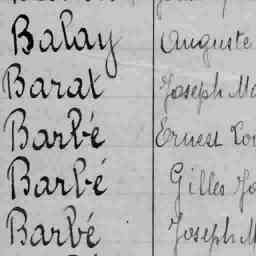 Balay Auguste
Barat Joseph Ma
Barbé Ernest Lou
Barbé Gilles Jo
Barbé Joseph M